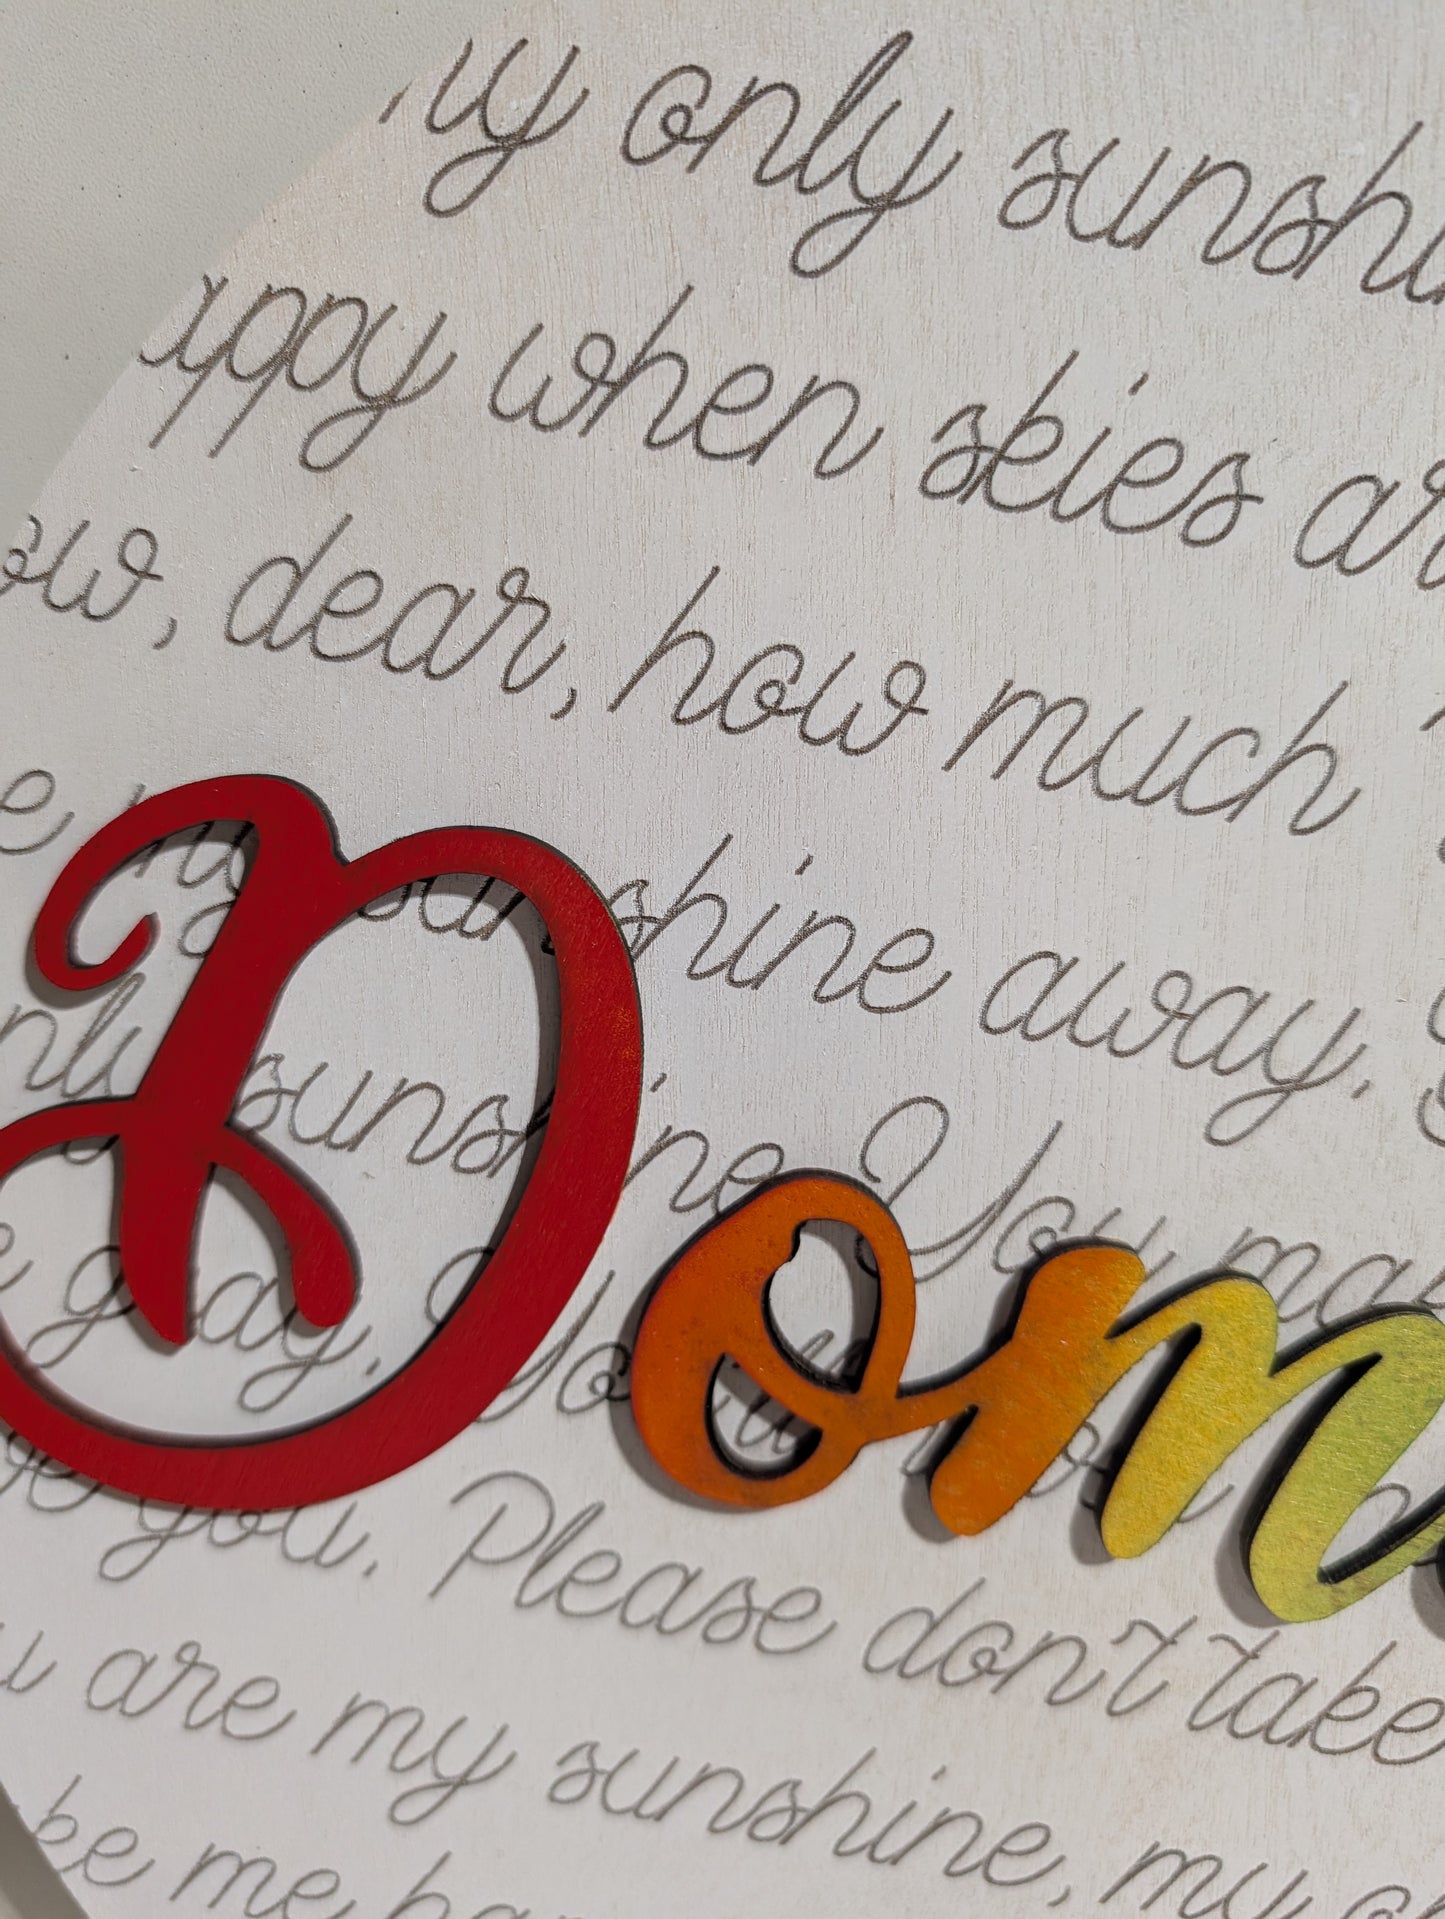 my only sunshi
appy when skies ar
ow, dear, how much
e my sunshine away.
nly sunshine You ma
e gray. You'll
you. Please don't take
u are my sunshine, my on
ke me ha
Dom